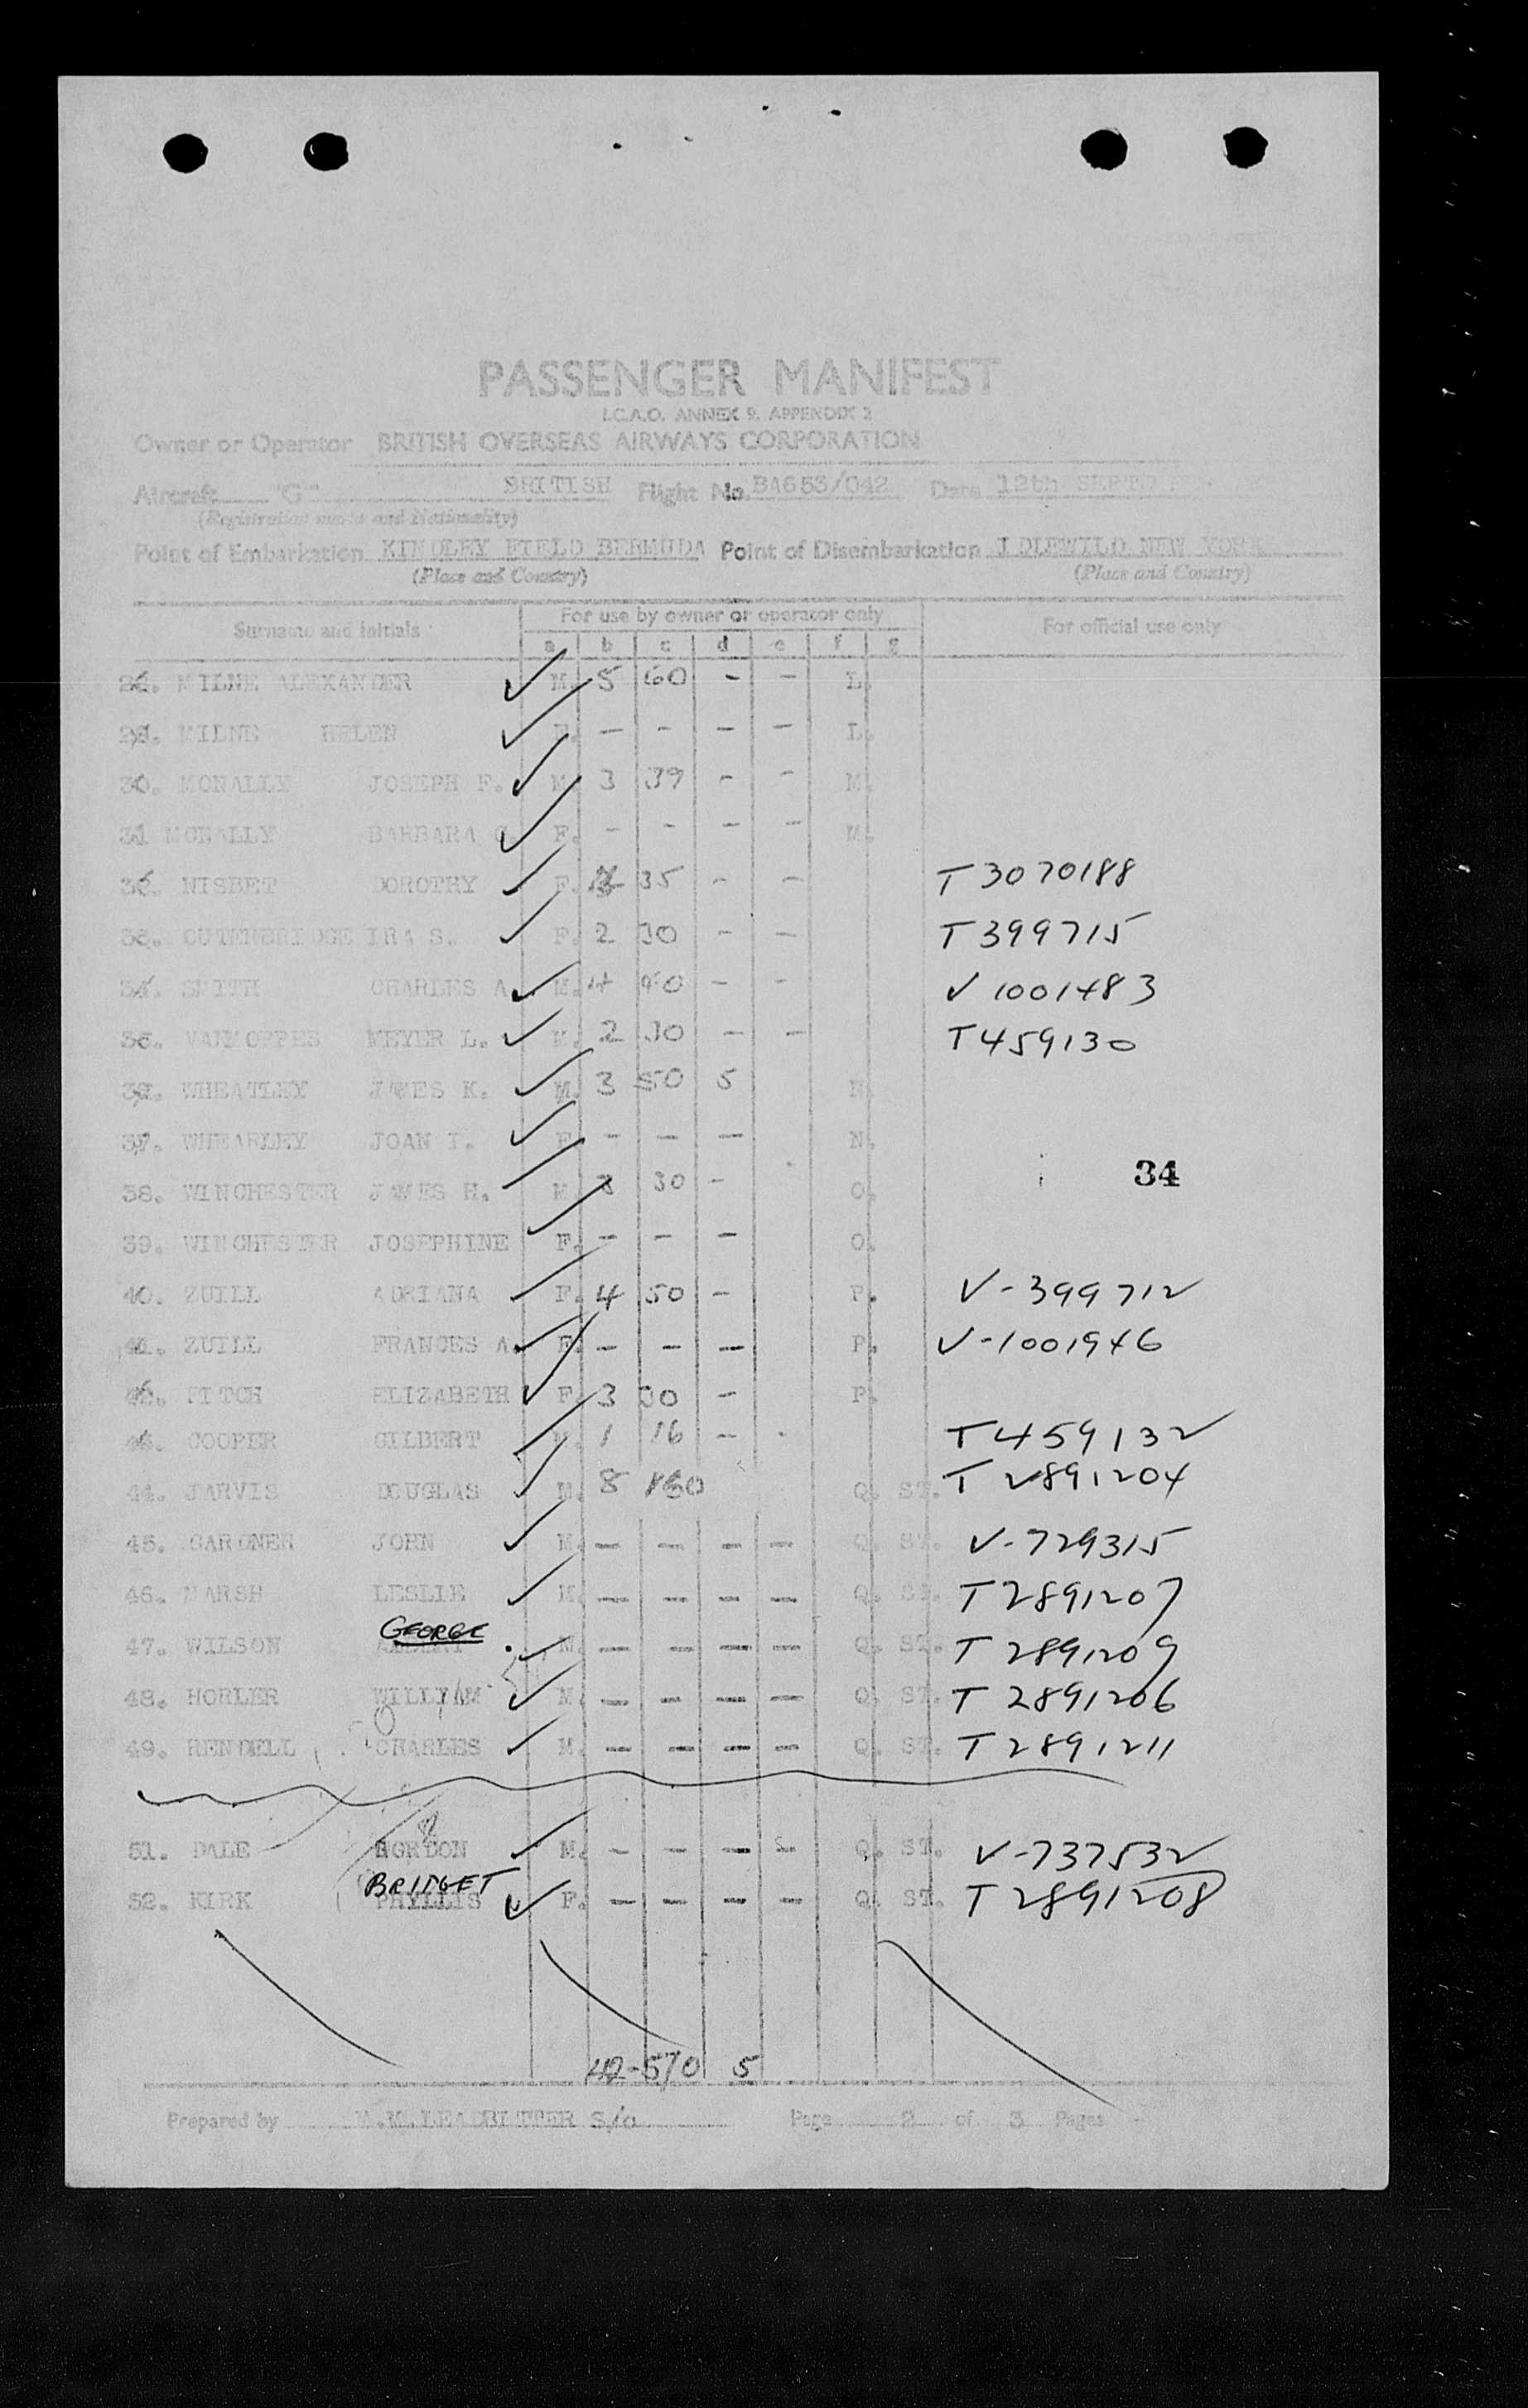 PASSENGER MANIFEST
I.C.A.O. ANNEX 9. APPENDIX 2
Owner or Operator BRITISH OVERSEAS AIRWAYS CORPORATION
Aircraft "G" BRITISH Flight No. BA653/042 Date 12th
(Registration marks and Nationality)
Point of Embarkation KINDLEY FIELD BERMUDA Point of Disembarkation IDLEWILD NEW YORK
(Place and Country) (Place and Country)
Surname and initials For use by owner or operator only For official use only
a b c d e f g
MILNE ALEXANDER ✓ M. 5 60 - - L.
MILNE HELEN ✓ F. - - - - L.
30. MCNALLY JOSEPH F. ✓ M. 3 39 - - M.
31 MCNALLY BARBARA ✓ F. - - - - M.
NISBET DOROTHY ✓ F. 35 - - T3070188
OUTERBRIDGE IRA S. ✓ F. 2 30 - - T399715
34. SMITH CHARLES A. ✓ M. 4 40 - - V 1001483
35. VANMOPPES MEYER L. ✓ M. 2 30 - - T459130
WHEATLEY JAMES K. ✓ M. 3 50 5 N.
37. WHEARLEY JOAN I. ✓ F. - - - N.
34
38. WINCHESTER JAMES H. M 30 - O.
39. WINCHESTER JOSEPHINE F. - - - O.
40. ZUILL ADRIANA F. 4 50 - P. V-399712
41. ZUILL FRANCES A. ✓ F. - - - P. V-1001946
FITCH ELIZABETH ✓ F. 3 30 - P.
COOPER GILBERT M. 1 16 - - T459132
44. JARVIS DOUGLAS ✓ M. 8 160 Q. ST. T 2891204
45. GARDNER JOHN ✓ M. - - - - Q. ST. V-729315
46. MARSH LESLIE ✓ M. - - - - Q. ST. T2891207
GEORGE
47. WILSON ✓ M. - - - - Q. ST. T 2891209
48. HORLER WILLIAM ✓ M. - - - - Q. ST. T 2891206
49. RENDELL CHARLES ✓ M. - - - - Q. ST. T2891211
51. DALE GORDON ✓ M. - - - - Q. ST. V-737532
BRIDGET
52. KIRK PHYLLIS ✓ F. - - - - Q. ST. T2891208
42-570 5
Prepared by M.M.LEADBITTER S/a Page 2 of 3 Pages